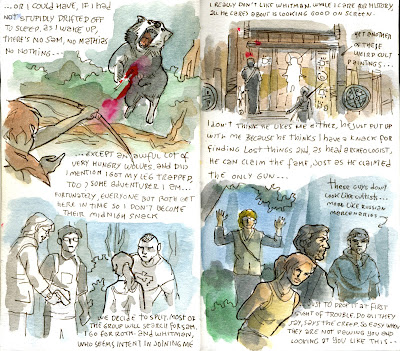 ...OR I COULD HAVE, IF I HAD
NOT STUPIDLY DRIFTED OFF
TO SLEEP. AS I WAKE UP,
THERE'S NO SAM, NO MATHIAS
NO NOTHING...
...EXCEPT AN AWFUL LOT OF
VERY HUNGRY WOLVES. AND DID
I MENTION I GOT MY LEG TRAPPED,
TOO? SOME ADVENTURER I AM...
FORTUNATELY EVERYONE BUT BOTH GET
HERE IN TIME SO I DON'T BECOME
THEIR MIDNIGH SNACK
WE DECIDE TO SPLIT. MOST OF
THE GROUP WILL SEARCH FOR SAM,
I GO FOR ROTH. AND WHITMAN,
WHO SEEMS INTENT IN JOINING ME
I REALLY DON'T LIKE WHITMAN. WHILE I CARE FOR HISTORY
ALL HE CARES ABOUT IS LOOKING GOOD ON SCREEN.
YET ANOTHER
OF THESE
WEIRD CULT
PAINTINGS...
I DON'T THINK HE LIKES ME EITHER, HE JUST PUT UP
WITH ME BECAUSE HE THINKS I HAVE A KNACK FOR
FINDING LOST THINGS AND AS HEAD ARCHEOLOGIST,
HE CAN CLAIM THE FAME, JUST AS HE CLAIMED
THE ONLY GUN...
THESE GUYS DON'T
LOOK LIKE CULTISTS...
MORE LIKE RUSSIAN
MERCENARIES...
JUST TO DROP IT AT FIRST
SIGHT OF TROUBLE. DO AS THEY
SAY, SAYS THE CREEP. SO EASY WHEN
THEY ARE NOT PAWING YOU AND
LOOKING AT YOU LIKE THIS...